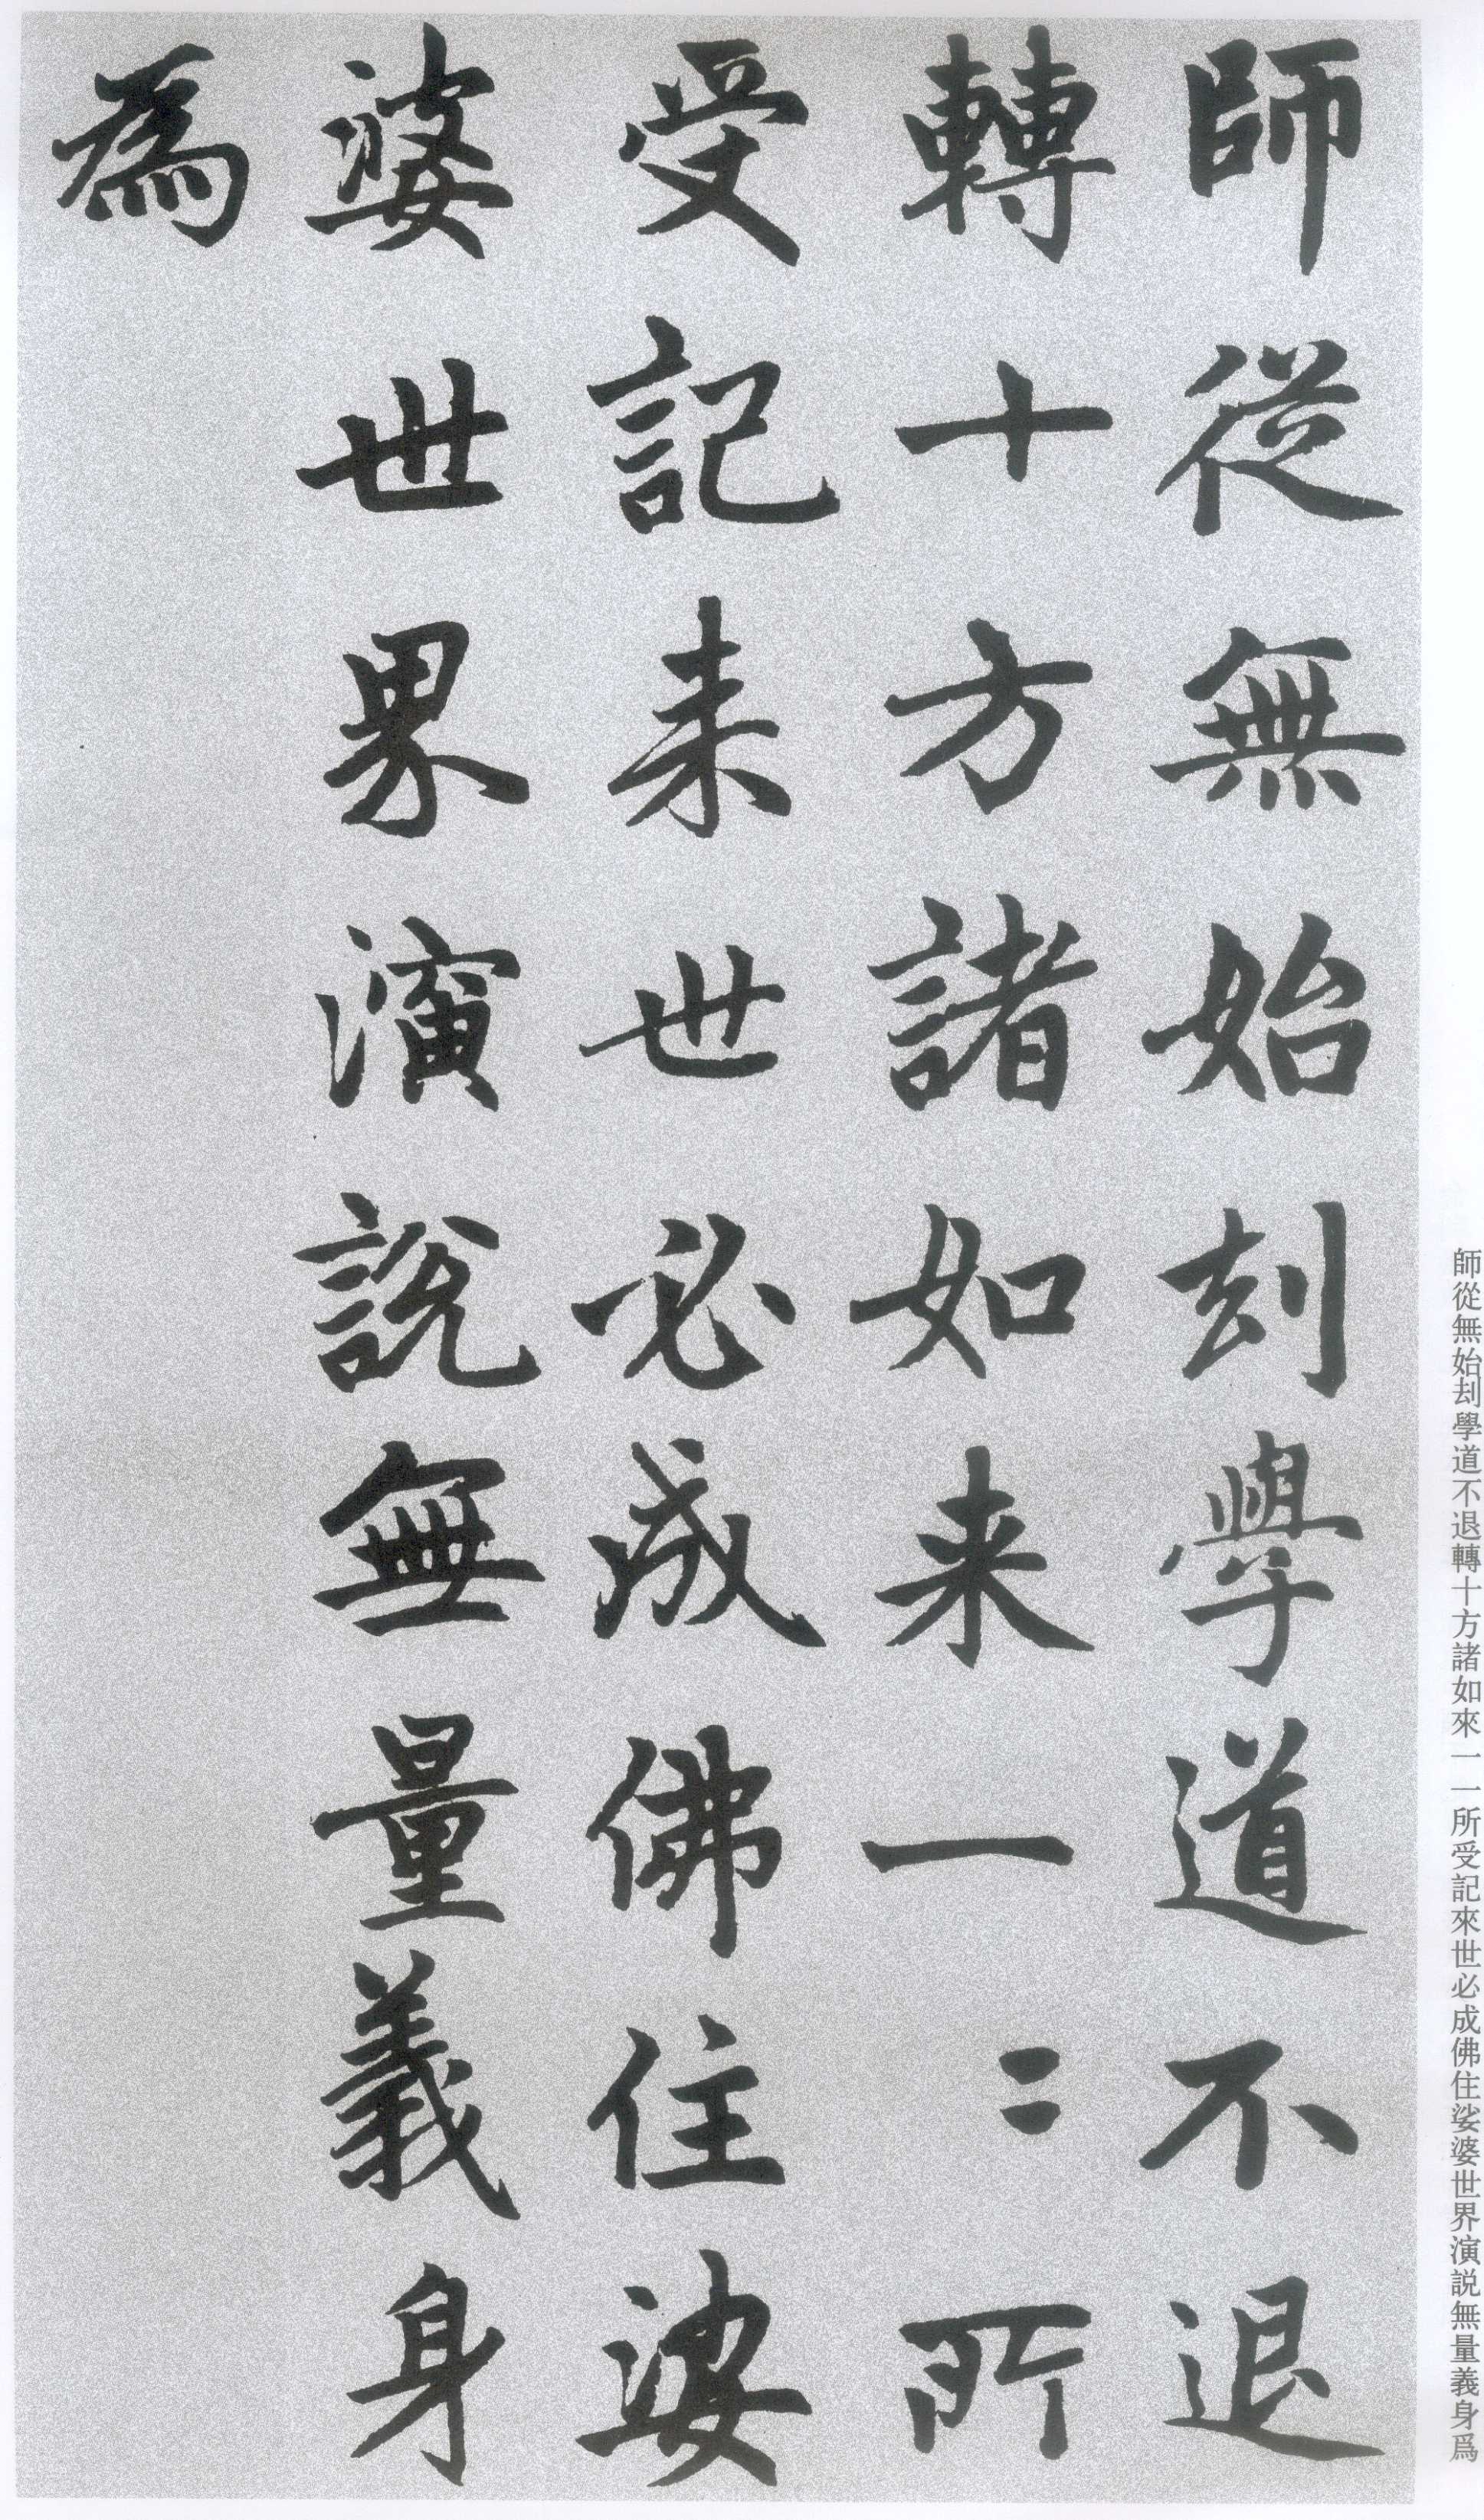 師從無始刦學道不退
轉十方諸如来一〻所
受記来世必成佛住娑
婆世界演説無量義身
為
師從無始刦學道不退轉十方諸如來一一所受記來世必成佛住娑婆世界演説無量義身爲